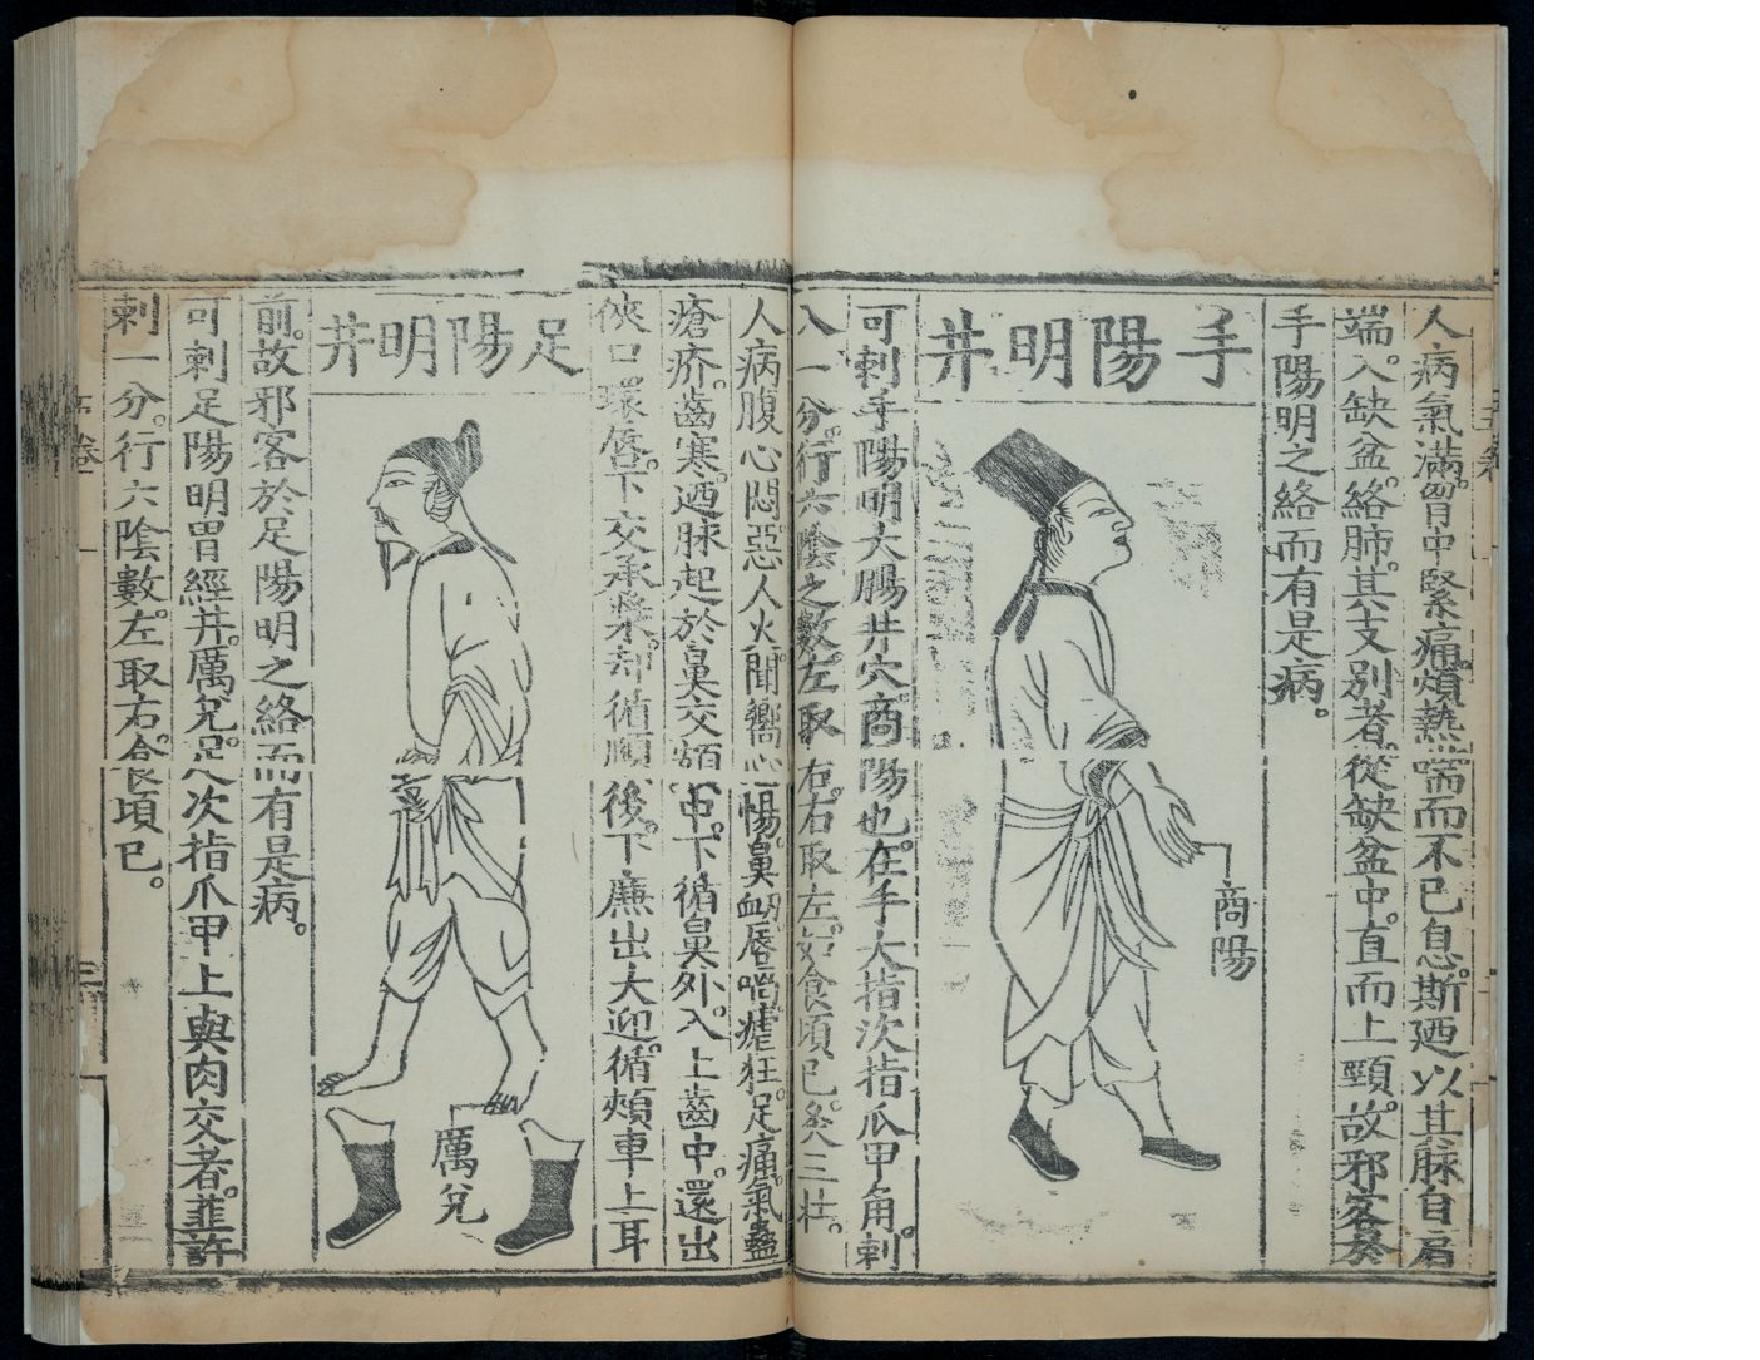 人病氣滿。胷中緊痛。煩熱。喘而不已息。斯廼以其脉自肩
端。入缺盆。絡肺。其支別者。從缺盆中。直而上頸。故邪客奏
手陽明之絡而有是病。
手陽明井
商陽
可刺手陽明大腸井穴。商陽也。在手大指次指爪甲角。刺
入一分。行六陰之數。左取右。右取左。如食頃已。灸三壯。
人病腹心悶。惡人火。聞響心惕。鼻衂。唇喎。瘧狂。足痛。氣蠱
瘡疥。齒寒。廼脉起於鼻交頞中。下循鼻外。入上齒中。還出
俠口。環唇。下交承漿。却循頤後。下廉出大迎。循頰車上耳
足陽明井
厲兌
前。故邪客於足陽明之絡而有是病。
可刺足陽明胃經井。厲兌。足次指爪甲上與肉交者。韮許
刺一分。行六陰數。左取右。食頃已。